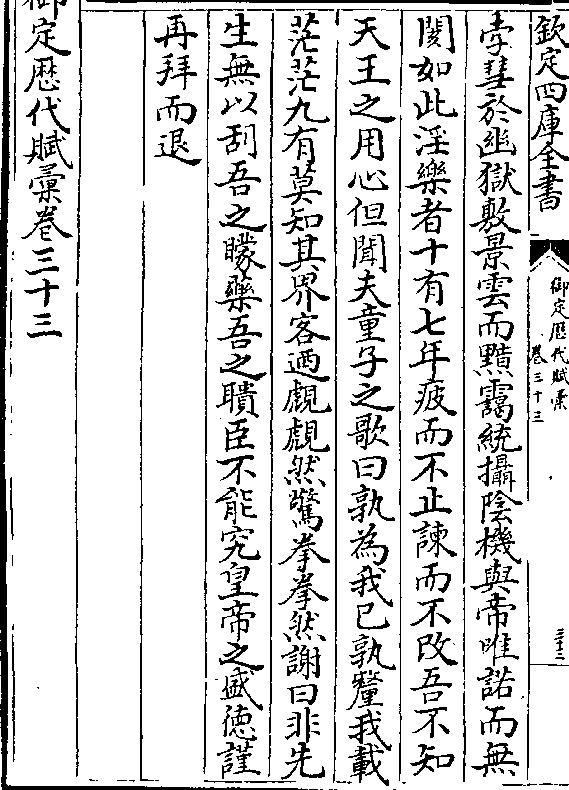 欽定四庫全書
御定歴代賦彙
卷三十三
三十三
孛彗於幽獄敷景雲而黯靄統攝陰機與帝唯諾而無
闋如此淫樂者十有七年疲而不止諫而不改吾不知
天王之用心但聞夫童子之歌曰孰為我已孰釐我載
茫茫九有莫知其界客迺覤覤然驚拳拳然謝曰非先
生無以刮吾之矇藥吾之聵臣不能究皇帝之盛徳謹
再拜而退
御定歴代賦彙卷三十三